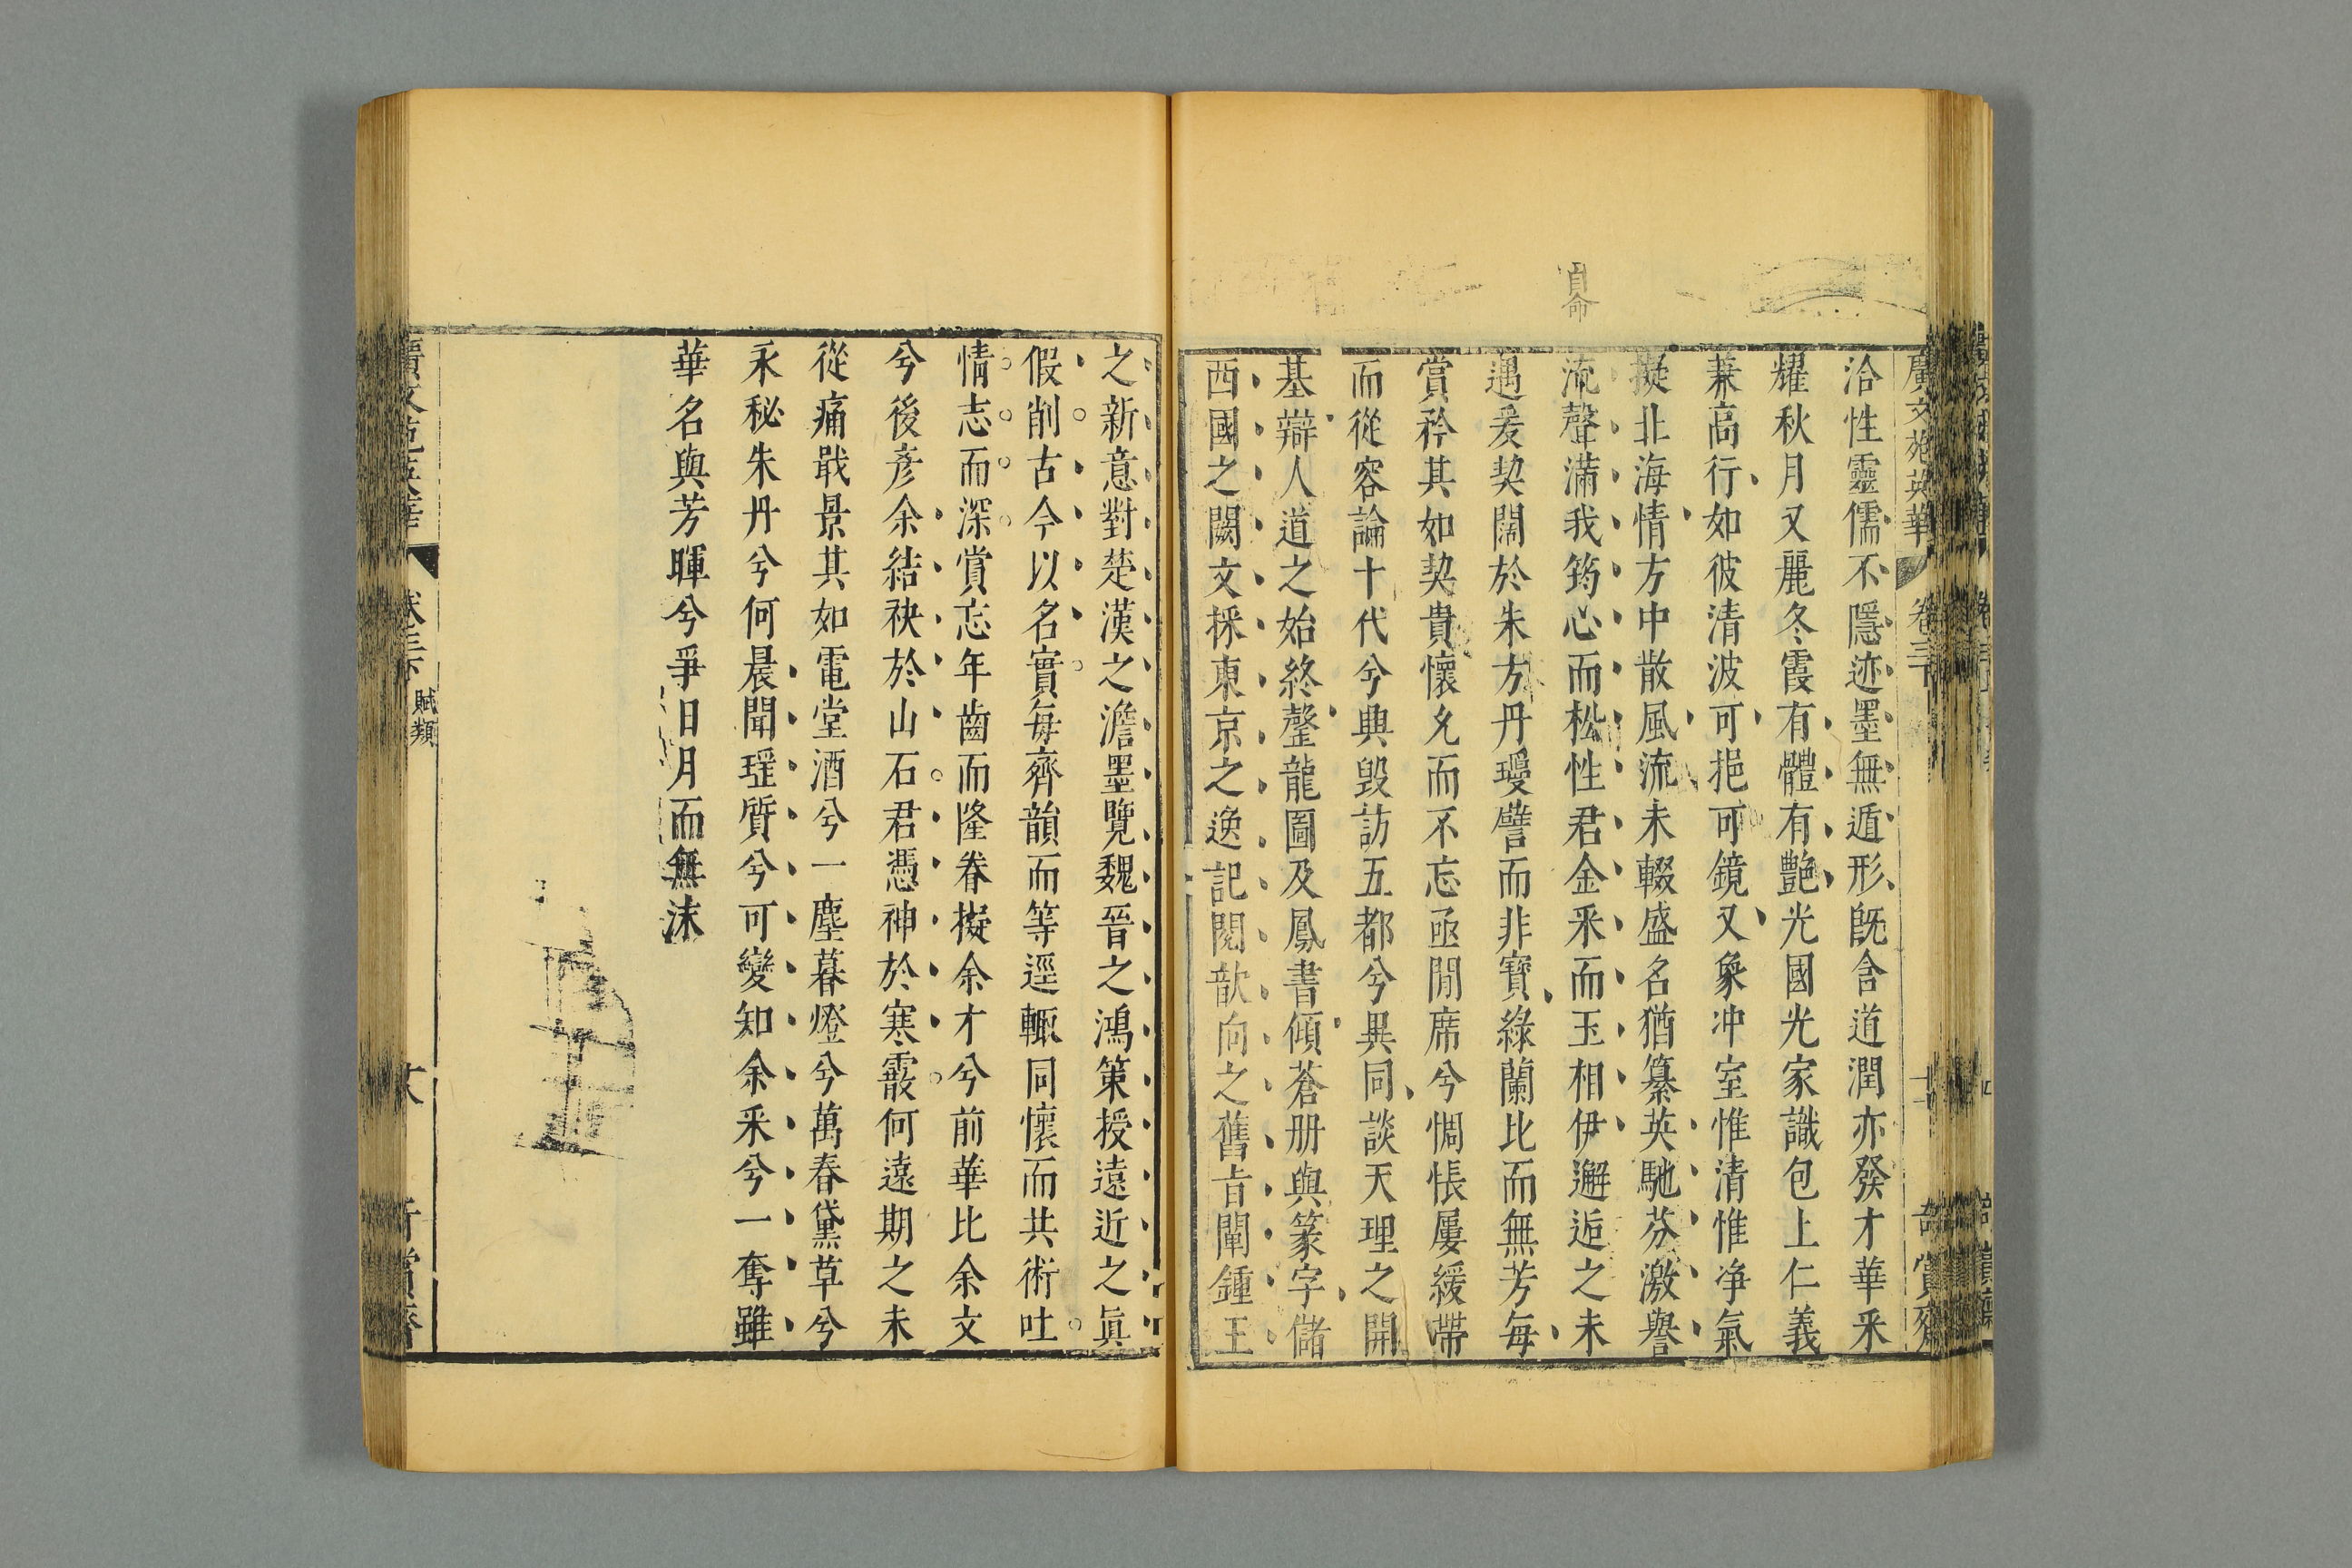 廣文苑英華 卷三 賞齋
洽性靈儒不隱迹墨無遁形旣含道潤亦發才華釆
耀秋月又麗冬霞有體有艶光國光家識包上仁義
兼高行如彼清波可挹可鏡又象冲室惟清惟净氣
擬北海情方中散風流未輟盛名猶纂英馳芬激譽
流聲滿我筠心而松性君金釆而玉相伊邂逅之未
遇爰契闊於朱方丹璦譬而非寶綠蘭比而無芳每
賞矜其如契貴懷允而不忘亟閒席兮惆悵屢緩帶
而從容論十代兮興毀訪五都兮異同談天理之開
基辯人道之始終罄龍圖及鳳書傾蒼册與篆字儲
西國之闕文採東京之逸記閱歆向之舊旨闡鍾王
之新意對楚漢之澹墨覽魏晉之鴻策授遠近之眞
假削古今以名實每齊韻而等逕輒同懷而共術吐
情志而深賞忘年齒而隆眷擬余才兮前華比余文
兮後彥余結袂於山石君憑神於寒霰何遠期之未
從痛戢景其如電堂酒兮一塵暮燈兮萬春黛草兮
永秘朱丹兮何晨聞瑶質兮可變知余釆兮一奪雖
華名與芳暉兮爭日月而無沫
廣文苑英華 賦類